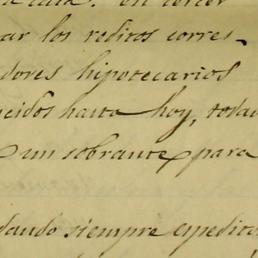 a casa. en tercer
ar los reditos corres-
dores hipotecarios
cidos hasta hoy, toda
un sobrante para
dando siempre espedito